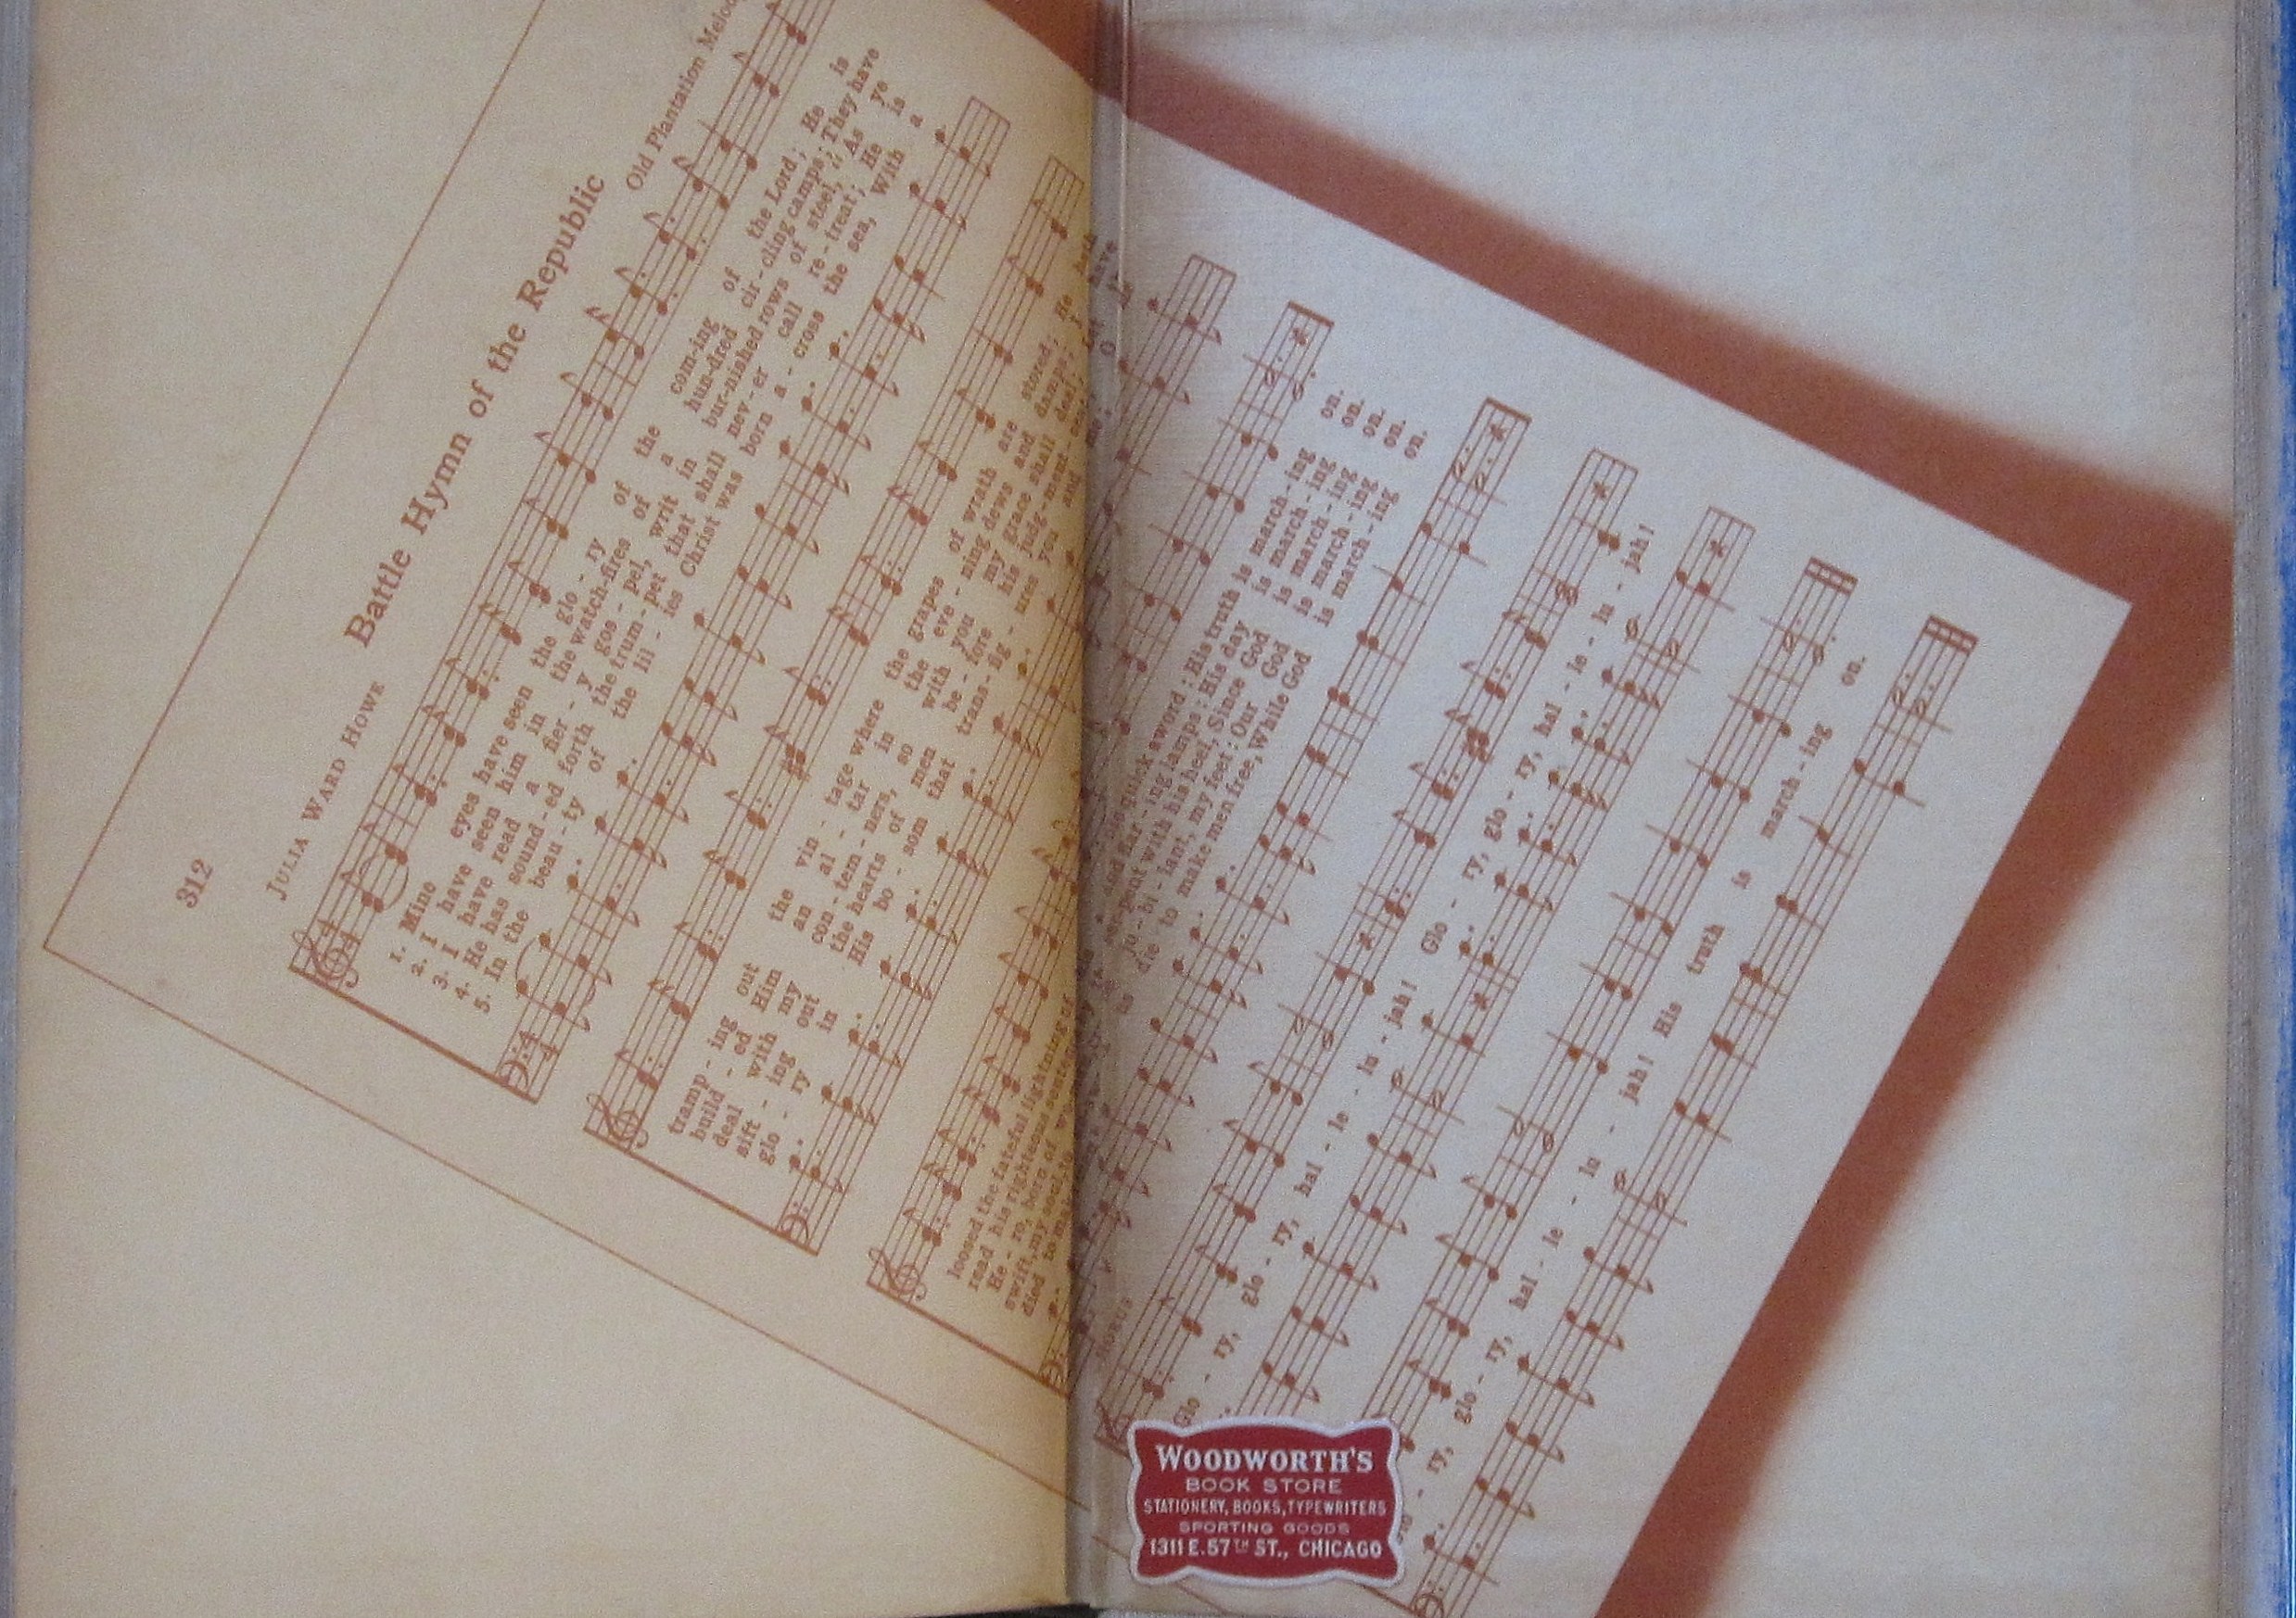 312
Battle Hymn of the Republic
JULIA WARD HOWE
Old Plantation Melody
1. Mine eyes have seen the glo - ry of the com-ing of the Lord; He is
2. I have seen him in the watch-fires of a hun-dred cir-cling camps; They have
3. I have read a fier - y gos - pel, writ in bur-nished rows of steel, "As ye
4. He has sound-ed forth the trum-pet that shall nev-er call re-treat; He is
5. In the beau-ty of the lil - ies Christ was born a-cross the sea, With a
tramp - ing out the vin - tage where the grapes of wrath are stored; He hath
build - ed Him an al - tar in the eve - ning dews and damps; I
deal with my con-tem-ners, so with you my grace shall deal;" Let
sift - ing out the hearts of men be - fore his judg-ment-seat; O
glo - ry in His bo - som that trans-fig - ures you and
loosed the fateful lightning of
quick sword: His truth is march-ing on.
read his righteous sentence
ing lamps: His day is march-ing on.
He - ro, born of
ser-pent with his heel, Since God is march-ing on.
swift, my soul, to
ju-bi-lant, my feet: Our God is march-ing on.
died to
die to make men free, While God is march-ing on.
Glo - ry, glo - ry, hal - le - lu - jah! Glo - ry, glo - ry, hal - le - lu - jah!
ry, glo - ry, hal - le - lu - jah! His truth is march-ing on.
WOODWORTH'S
BOOK STORE
STATIONERY, BOOKS, TYPEWRITERS
SPORTING GOODS
1311 E. 57TH ST., CHICAGO